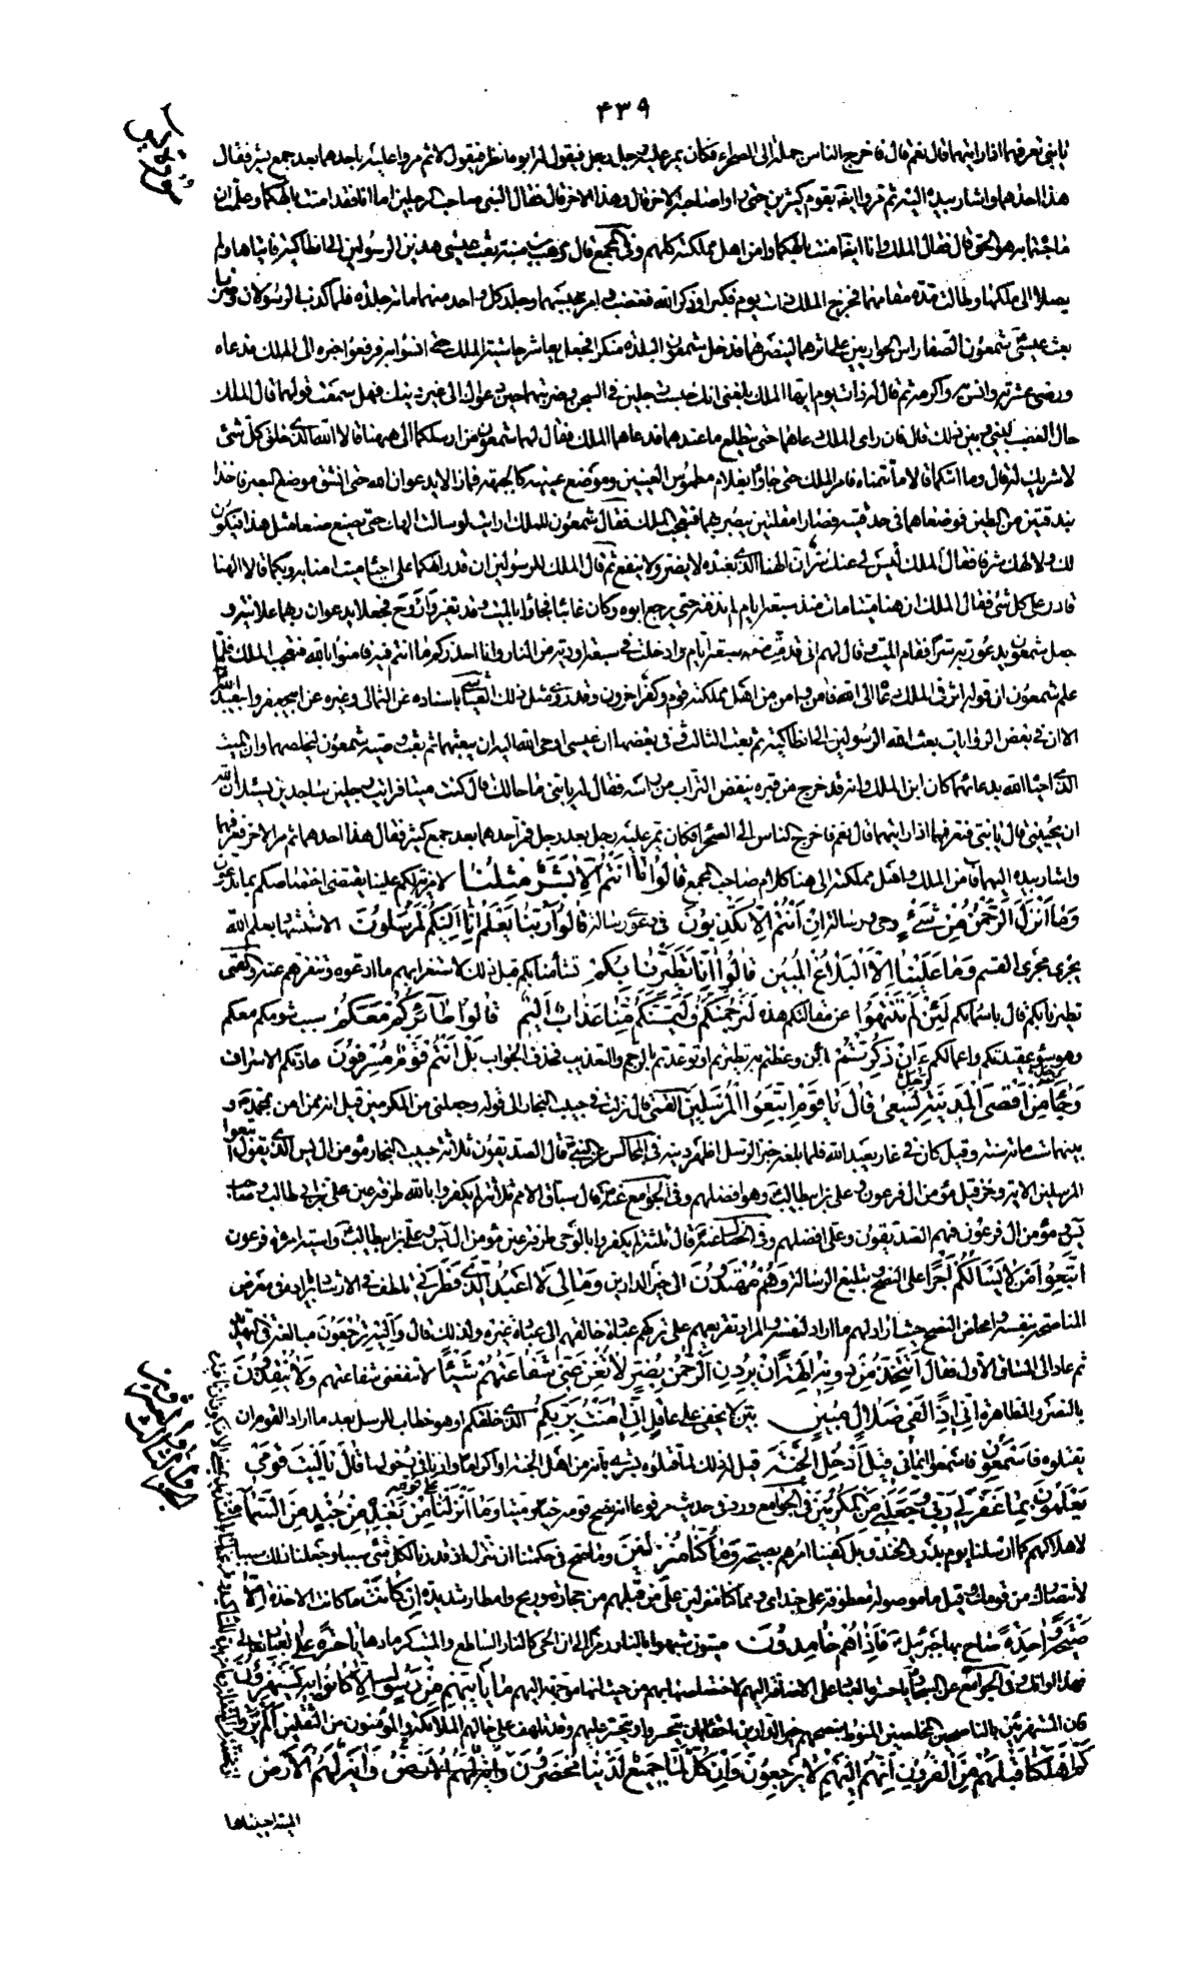 ۴۳۹
سورة يس
يا بنى تعرفهما اذا رايتهما قال نعم قال فاخرج الناس جملة الى الصحراء فكان يمر عليه رجل رجل فيقول له ابوه انظر فيقول لا ثم مروا عليه باحدهما بعد جمع كثير فقال
هذا احدهما واشار بيده اليه ثم مروا ايضا بقوم كثيرين حتى راى صاحبه الاخر فقال وهذا الاخر قال فقال النبى صاحب الرجلين اما انا فقد امنت بالهكما وعلمت ان
ما جئتما به هو الحق قال فقال الملك وانا ايضا امنت بالهكما وامن اهل مملكته كلهم وفى المجمع قال وهب بن منبه بعث عيسى هذين الرسولين الى انطاكية فاتياها ولم
يصلا الى ملكها وطالت مدة مقامهما فخرج الملك ذات يوم فكبرا وذكرا الله فغضب وامر بحبسهما وجلد كل واحد منهما مائة جلدة فلما كذب الرسولان وضربا
بعث عيسى شمعون الصفا راس الحواريين على اثرهما لينصرهما فدخل شمعون البلدة منكرا فجعل يعاشر حاشية الملك حتى انسوا به فرفعوا خبره الى الملك فدعاه
ورضى عشرته وانس به واكرمه ثم قال له ذات يوم ايها الملك بلغنى انك حبست رجلين فى السجن وضربتهما حين دعواك الى غير دينك فهل سمعت قولهما قال الملك
حال الغضب بينى وبين ذلك قال فان راى الملك دعاهما حتى يتطلع ما عندهما فدعاهما الملك فقال لهما شمعون من ارسلكما الى ههنا قالا الله الذى خلق كل شئ
لا شريك له قال وما ايتكما قالا ما تتمناه فامر الملك حتى جاؤا بغلام مطموس العينين وموضع عينيه كالجبهة فما زالا يدعوان الله حتى انشق موضع البصر فاخذا
بندقتين من الطين فوضعاهما فى حدقتيه فصارا مقلتين يبصر بهما فتعجب الملك فقال شمعون للملك ارايت لو سالت الهك حتى يصنع صنعا مثل هذا فيكون
لك ولالهك شرفا فقال الملك ليس لى عنك سر ان الهنا الذى نعبده لا يضر ولا ينفع ثم قال الملك للرسولين ان قدر الهكما على احياء ميت امنا به وبكما قالا الهنا
قادر على كل شئ فقال الملك ان هنا ميتا مات منذ سبعة ايام لم ندفنه حتى يرجع ابوه وكان غائبا فجاؤا بالميت وقد تغير واروح فجعلا يدعوان ربهما علانية و
جعل شمعون يدعو ربه سرا فقام الميت وقال لهم انى قد مت منذ سبعة ايام وادخلت فى سبعة اودية من النار وانا احذركم ما انتم فيه فامنوا بالله فتعجب الملك فلما
علم شمعون ان قوله اثر فى الملك دعاه الى الله فامن وامن من اهل مملكته قوم وكفر اخرون وقد روى مثل ذلك العياشى باسناده عن الثمالى وغيره عن ابى جعفر وابى عبد الله
الا ان فى بعض الروايات بعث الله الرسولين الى انطاكية ثم بعث الثالث وفى بعضها ان عيسى اوحى الله اليه ان يبعثهما ثم بعث وصيه شمعون ليخلصهما وان الميت
الذى احياه الله بدعائهما كان ابن الملك وانه قد خرج من قبره ينفض التراب من راسه فقال له يا بنى ما حالك قال كنت ميتا فرايت رجلين ساجدين يسئلان الله
ان يحيينى قال يا بنى فتعرفهما اذا رايتهما قال نعم فاخرج الناس الى الصحراء فكان يمر عليه رجل بعد رجل فمر احدهما بعد جمع كثير فقال هذا احدهما ثم مر الاخر فعرفهما
واشار بيده اليهما فامن الملك واهل مملكته الى هنا كلام صاحب المجمع قالوا ما انتم الا بشر مثلنا لا مزية لكم علينا يقتضى اختصاصكم بما تدعون
وما انزل الرحمن من شىء وحى ورسالة ان انتم الا تكذبون فى دعوى رسالة قالوا ربنا يعلم انا اليكم لمرسلون الاستشهاد بعلم الله
يجرى مجرى القسم وما علينا الا البلاغ المبين قالوا انا تطيرنا بكم تشأمنا بكم قيل ذلك لاستغرابهم ما ادعوه وتنفرهم عنه والقمى
تطيرنا بكم قال باسمائكم لئن لم تنتهوا عن مقالتكم هذه لنرجمنكم وليمسنكم منا عذاب اليم قالوا طائركم معكم سبب شومكم معكم
وهو سوء عقيدتكم واعمالكم ءان ذكرتم ائن وعظتم به تطيرتم او توعدتم بالرجم والتعذيب فحذف الجواب بل انتم قوم مسرفون عادتكم الاسراف
وجاء من اقصى المدينة رجل يسعى قال يا قوم اتبعوا المرسلين القمى قال نزلت فى حبيب النجار الى قوله وجعلنى من المكرمين قيل انه ممن امن بمحمد و
بينهما ستمائة سنة وقيل كان فى غار يعبد الله فلما بلغه خبر الرسل اظهر دينه فى المجالس عن النبى قال الصديقون ثلاثة حبيب النجار مؤمن ال يس الذى يقول اتبعوا
المرسلين الاية وحزقيل مؤمن ال فرعون وعلى بن ابيطالب وهو افضلهم وفى الجوامع عنه قال سباق الامم ثلاثة لم يكفروا بالله طرفة عين على بن ابى طالب وصاحب
يس ومؤمن ال فرعون فهم الصديقون وعلى افضلهم وفى الخصال عنه قال ثلثة لم يكفروا بالوحى طرفة عين مؤمن ال يس وعلى بن ابيطالب واسية امرئة فرعون
اتبعوا من لا يسألكم اجرا على النصح وتبليغ الرسالة وهم مهتدون الى خير الدارين ومالى لا اعبد الذى فطرنى تلطف فى الارشاد بايراده فى معرض
المناصحة لنفسه وامحاض النصح حيث اراد لهم ما اراد لنفسه والمراد تقريعهم على تركهم عبادة خالقهم الى عبادة غيره ولذلك قال واليه ترجعون مبالغة فى التهديد
ثم عاد الى المساق الاول فقال ءاتخذ من دونه الهة ان يردن الرحمن بضر لا تغن عنى شفاعتهم شيئا لا تنفعنى شفاعتهم ولا ينقذون
بالنصرة والمظاهرة انى اذا لفى ضلال مبين بين لا يخفى على عاقل انى امنت بربكم الذى خلقكم او هو خطاب للرسل بعد ما اراد القوم ان
يقتلوه فاسمعون فاسمعوا ايمانى قيل ادخل الجنة قيل له ذلك لما قتلوه بشرى بانه من اهل الجنة او اكراما واذنا فى دخولها قال يا ليت قومى
يعلمون بما غفر لى ربى وجعلنى من المكرمين فى الجوامع ورد فى حديث مرفوع انه نصح قومه حيا وميتا وما انزلنا على قومه من بعده من جند من السماء
لاهلاكهم كما ارسلنا يوم بدر والخندق بل كفينا امرهم بصيحة وما كنا منزلين وما صح فى حكمتنا ان ننزل اذ قدرنا لكل شئ سببا وجعلنا ذلك سببا
لانتصارك من قومك وقيل ما موصولة معطوفة على جند اى ومما كنا منزلين على من قبلهم من حجارة وريح وامطار شديدة ان كانت ما كانت الاخذة الا
صيحة واحدة صاح بها جبرئيل فاذا هم خامدون ميتون شبهوا بالنار رمزا الى ان الحى كالنار الساطع والميت كرمادها يا حسرة على العباد تعالى
فهذا اوانك وفى الجوامع عن السجاد يا حسرة العباد على الاضافة اليهم لاختصاصها بهم من حيث انها موجهة اليهم ما يأتيهم من رسول الا كانوا به يستهزؤن
فان المستهزئين بالناصحين المخلصين المنوط بنصحهم خير الدارين احقاء بان يتحسروا ويتحسر عليهم وقد تلهف على حالهم الملائكة والمؤمنون من الثقلين الم يروا
كم اهلكنا قبلهم من القرون انهم اليهم لا يرجعون وان كل لما جميع لدينا محضرون واية لهم الارض
الميتة احييناها